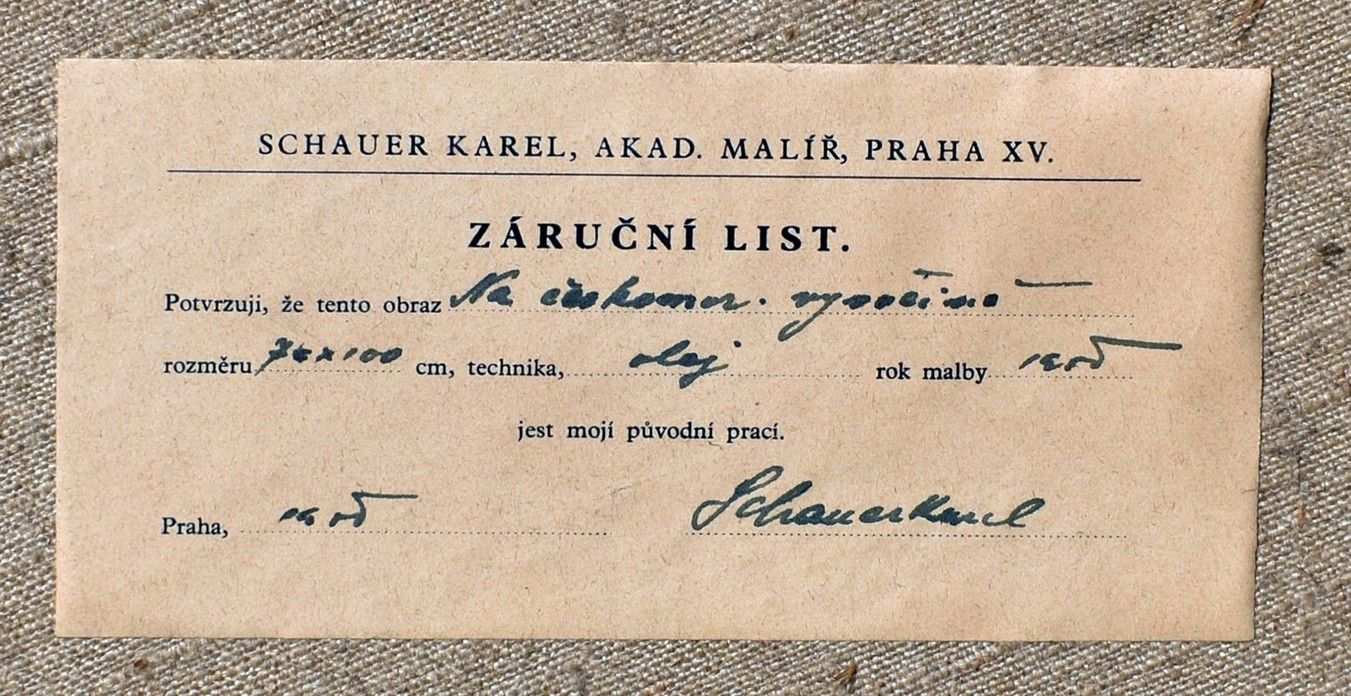 SCHAUER KAREL, AKAD. MALÍŘ, PRAHA XV.
ZÁRUČNÍ LIST.
Potvrzuji, že tento obraz Na českomor. vysočině
rozměru cm, technika, olej rok malby
jest mojí původní prací.
Praha, Schauer Karel